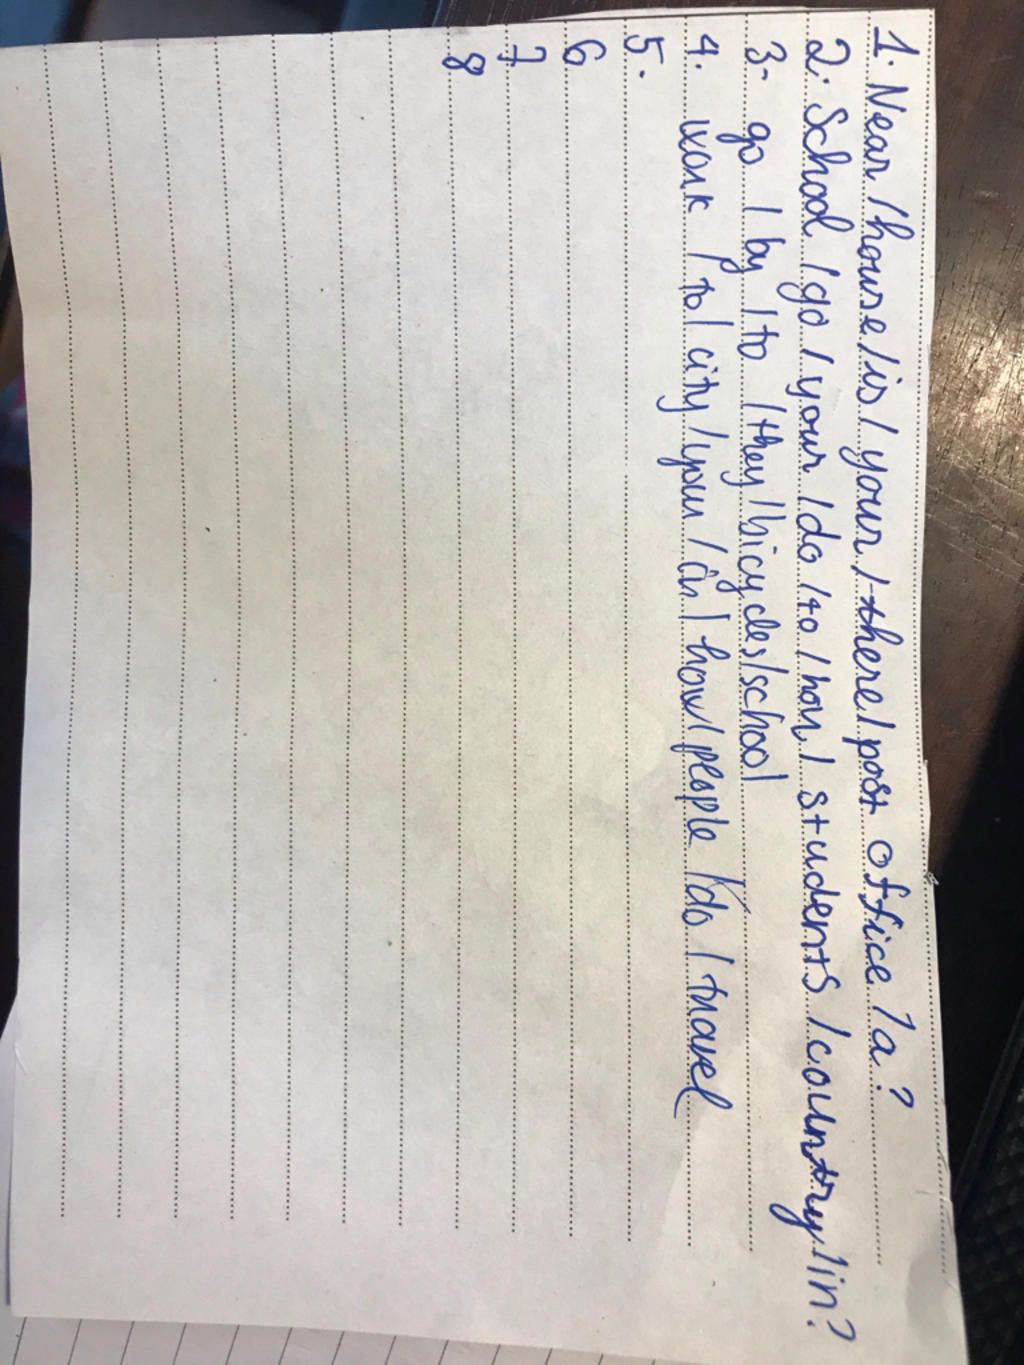 1. Near / house / is / your / there / post office / a?
2. School / go / your / do / to / how / students / country / in?
3. go / by / to / they / bicycles / school
4. work / to / city / your / in / how / people / do / travel
5.
6
7
8